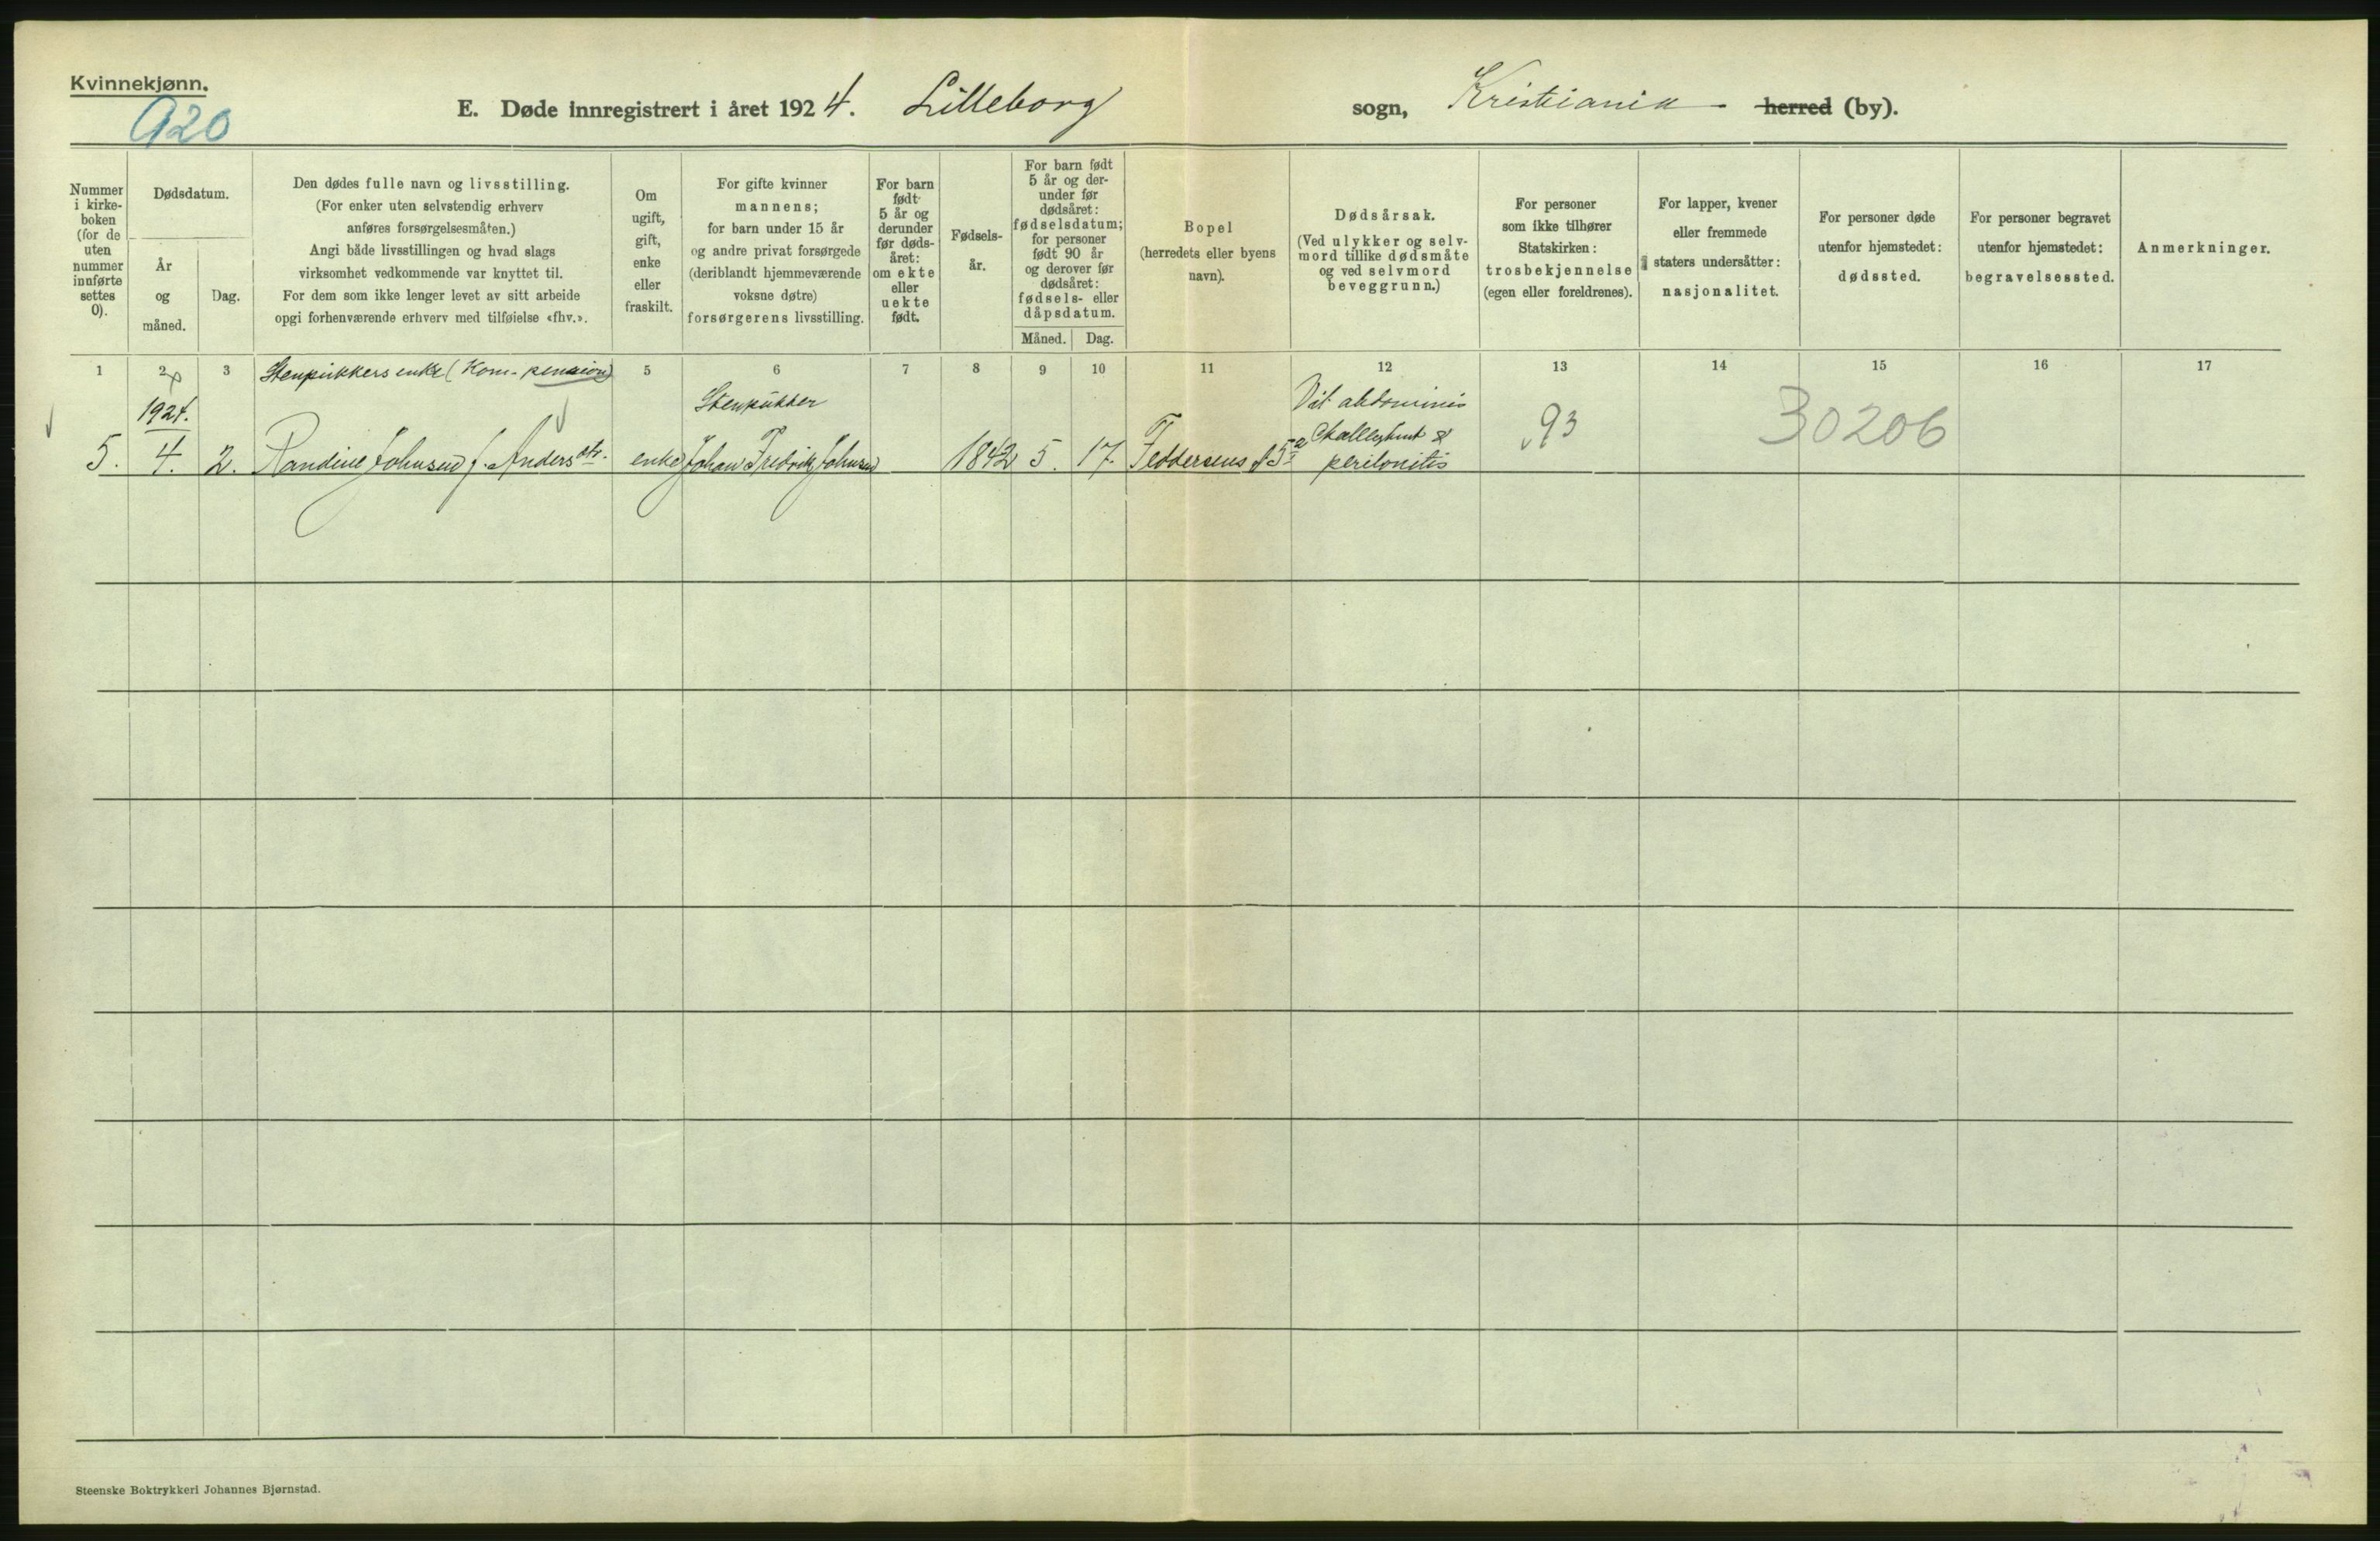 Kvinnekjønn.
920
E. Døde innregistrert i året 1924. Lilleborg sogn, Kristiania herred (by).
Nummer i kirke-boken (for de uten nummer innførte settes 0).
Dødsdatum.
År og måned.
Dag.
Den dødes fulle navn og livsstilling.
(For enker uten selvstendig erhverv
anføres forsørgelsesmåten.)
Angi både livsstillingen og hvad slags
virksomhet vedkommende var knyttet til.
For dem som ikke lenger levet av sitt arbeide
opgi forhenværende erhverv med tilføielse «fhv.».
Om
ugift,
gift,
enke
eller
fraskilt.
For gifte kvinner
mannens;
for barn under 15 år
og andre privat forsørgede
(deriblandt hjemmeværende
voksne døtre)
forsørgerens livsstilling.
For barn
født
5 år og
derunder
før døds-
året:
om ekte
eller
uekte
født.
Fødsels-
år.
For barn født
5 år og der-
under før
dødsåret:
fødselsdatum;
for personer
født 90 år
og derover før
dødsåret:
fødsels- eller
dåpsdatum.
Måned. Dag.
Bopel
(herredets eller byens
navn).
Dødsårsak.
(Ved ulykker og selv-
mord tillike dødsmåte
og ved selvmord
beveggrunn.)
For personer
som ikke tilhører
Statskirken:
trosbekjennelse
(egen eller foreldrenes).
For lapper, kvener
eller fremmede
staters undersåtter:
nasjonalitet.
For personer døde
utenfor hjemstedet:
dødssted.
For personer begravet
utenfor hjemstedet:
begravelsessted.
Anmerkninger.
1 2 3 Stenpikkers enke (Kom. pension) 5 6 7 8 9 10 11 12 13 14 15 16 17
1924. Stenpikker Vit abdominis
5. 4. 2. Randine Johnsen f. Andersdtr. enke Johan Fredrik Johnsen 1842 5. 17. Feddersens peritonitis
93 30206
Steenske Boktrykkeri Johannes Bjørnstad.